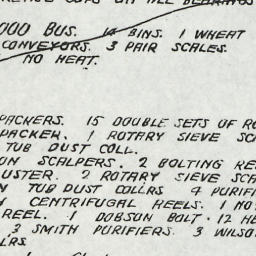 000 BUS. 14 BINS. 1 WHEAT
CONVEYORS. 3 PAIR SCALES.
NO HEAT.
PACKERS. 15 DOUBLE SETS OF RO
PACKER. 1 ROTARY SIEVE SC
TUB DUST COLL.
ON SCALPERS. 2 BOLTING RE
USTER. 2 ROTARY SIEVE SCA
N TUB DUST COLLRS 4 PURIFI
CENTRIFUGAL REELS. 1 NO
REEL. 1 DOBSON BOLT. 12 HE
3 SMITH PURIFIERS. 3 WILSO
LRS